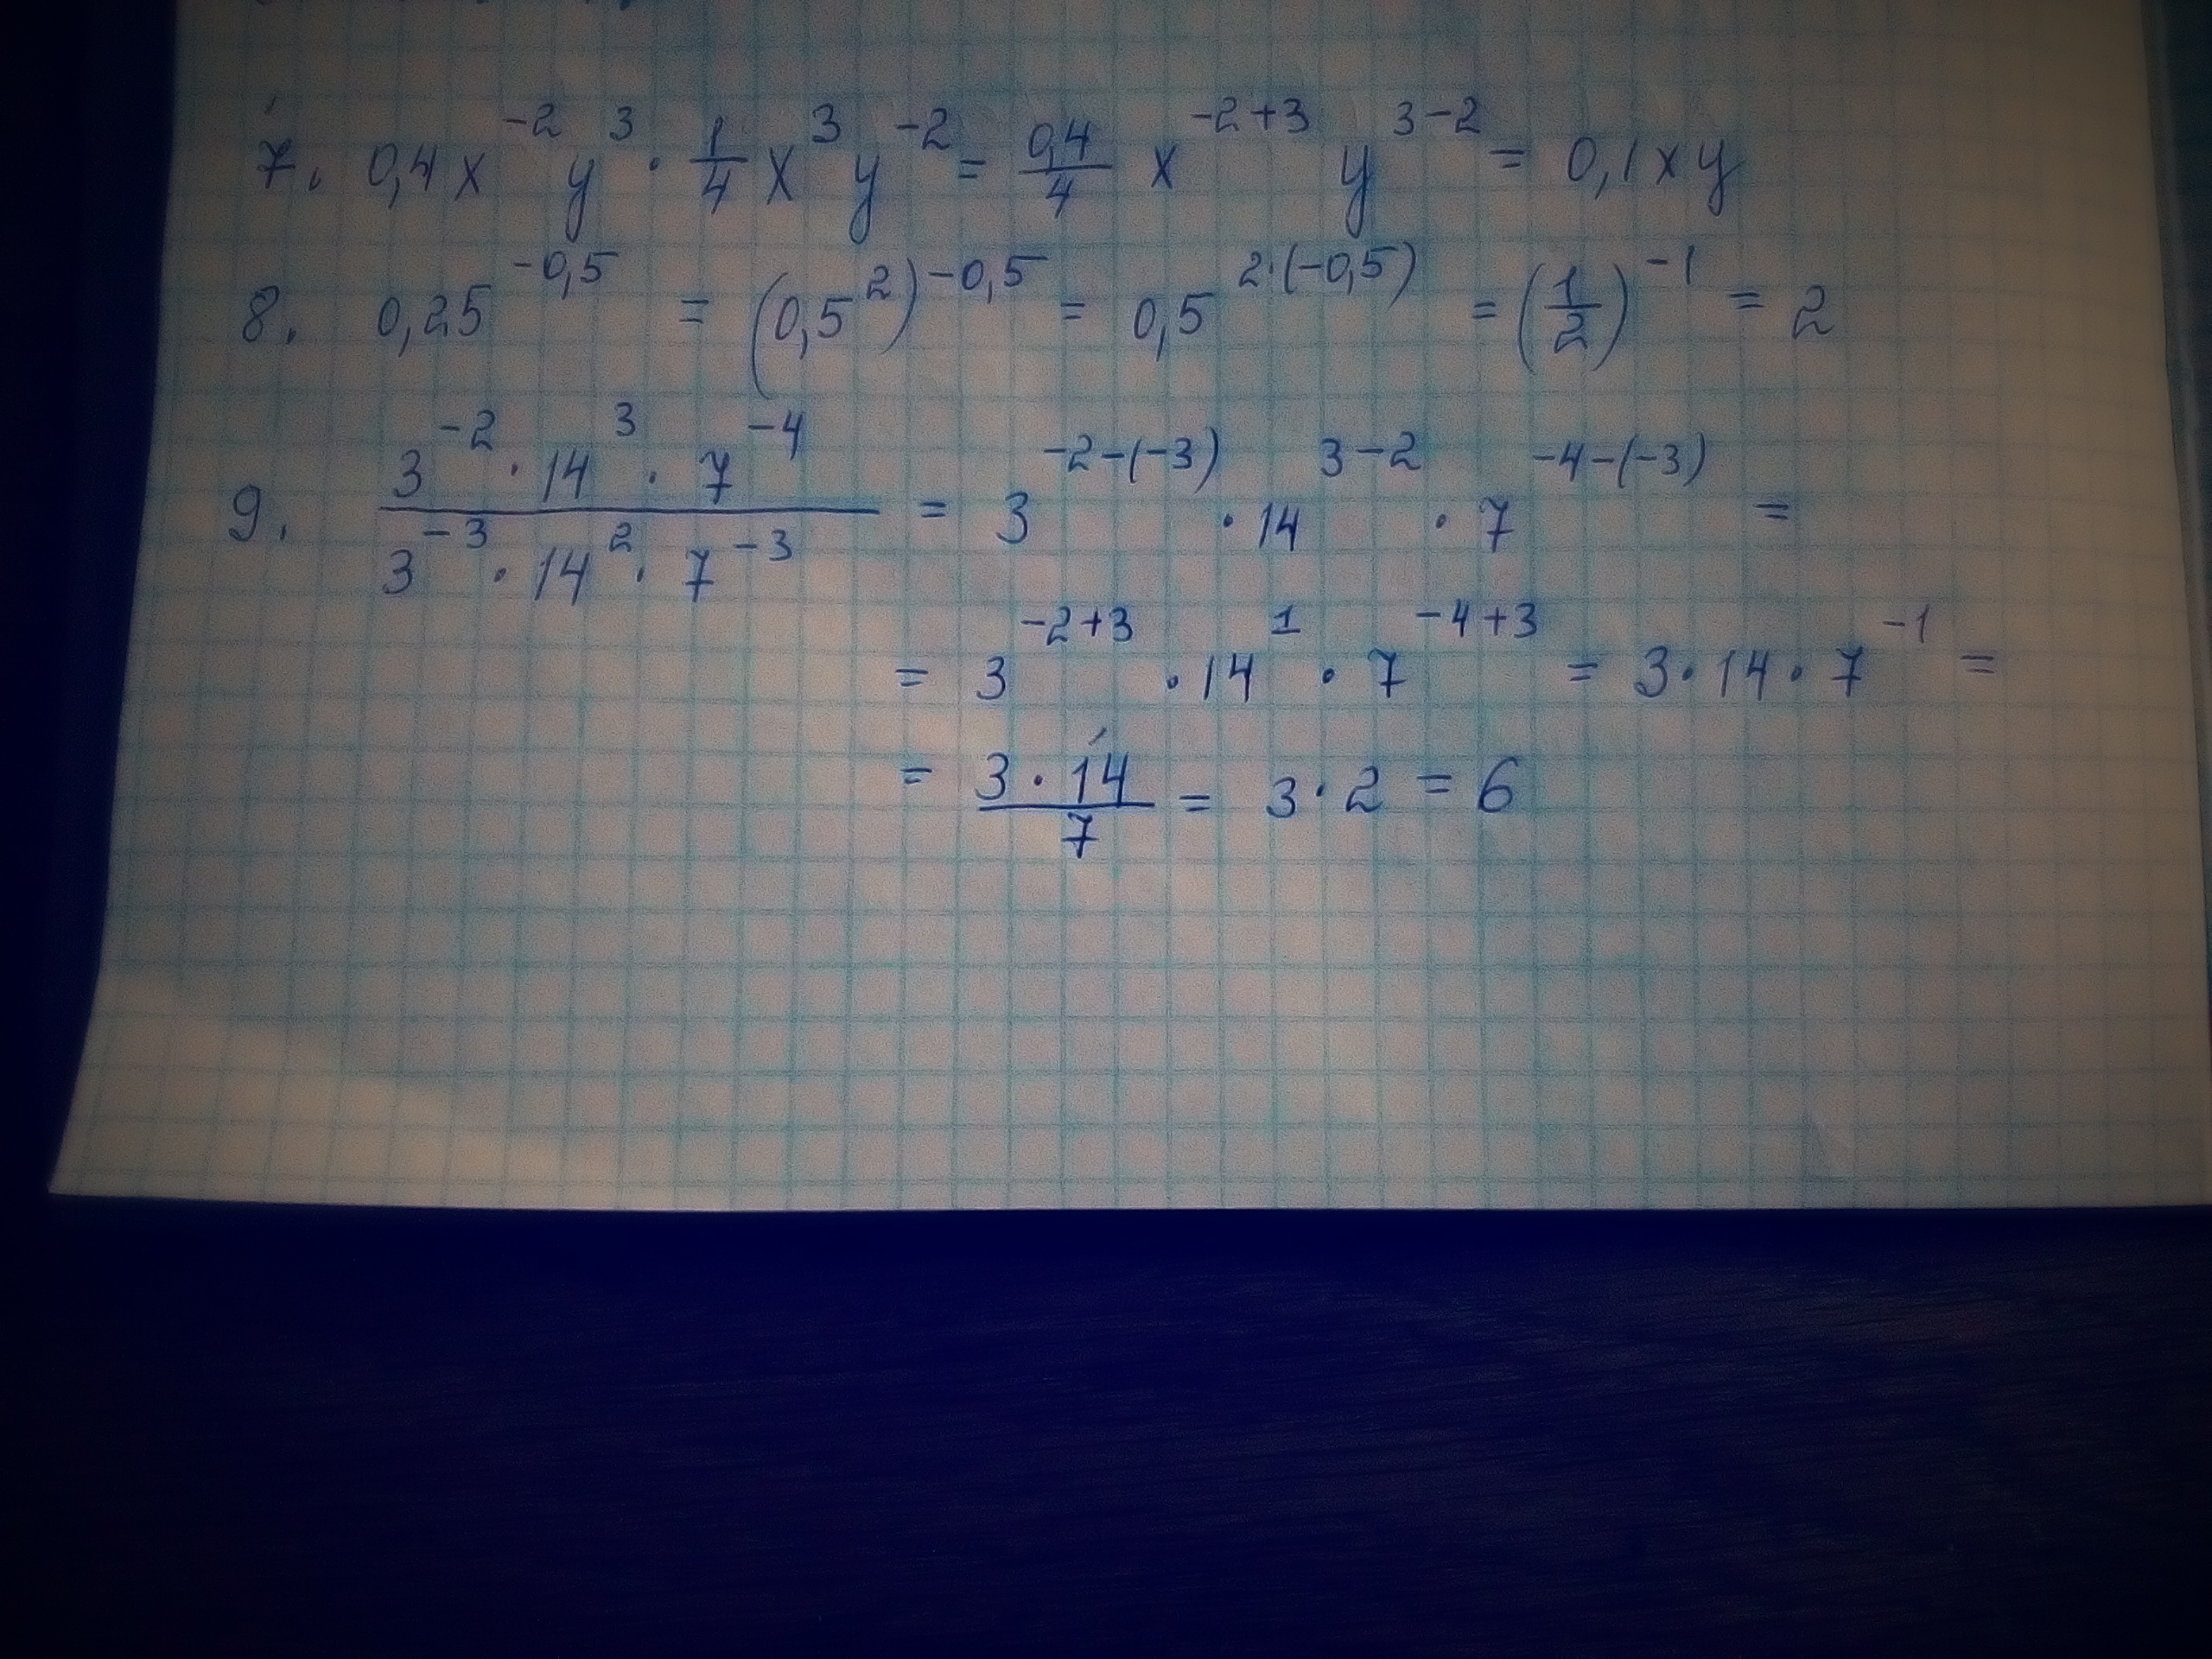 7. 0,4x⁻²y³ · 1/4 x³y⁻² = 0,4/4 x⁻²⁺³ y³⁻² = 0,1xy
8. 0,25^(-0,5) = (0,5²)^(-0,5) = 0,5^(2·(-0,5)) = (1/2)⁻¹ = 2
9. (3⁻² · 14³ · 7⁻⁴)/(3⁻³ · 14² · 7⁻³) = 3^(-2-(-3)) · 14^(3-2) · 7^(-4-(-3)) =
= 3⁻²⁺³ · 14¹ · 7⁻⁴⁺³ = 3 · 14 · 7⁻¹ =
= (3 · 14)/7 = 3 · 2 = 6